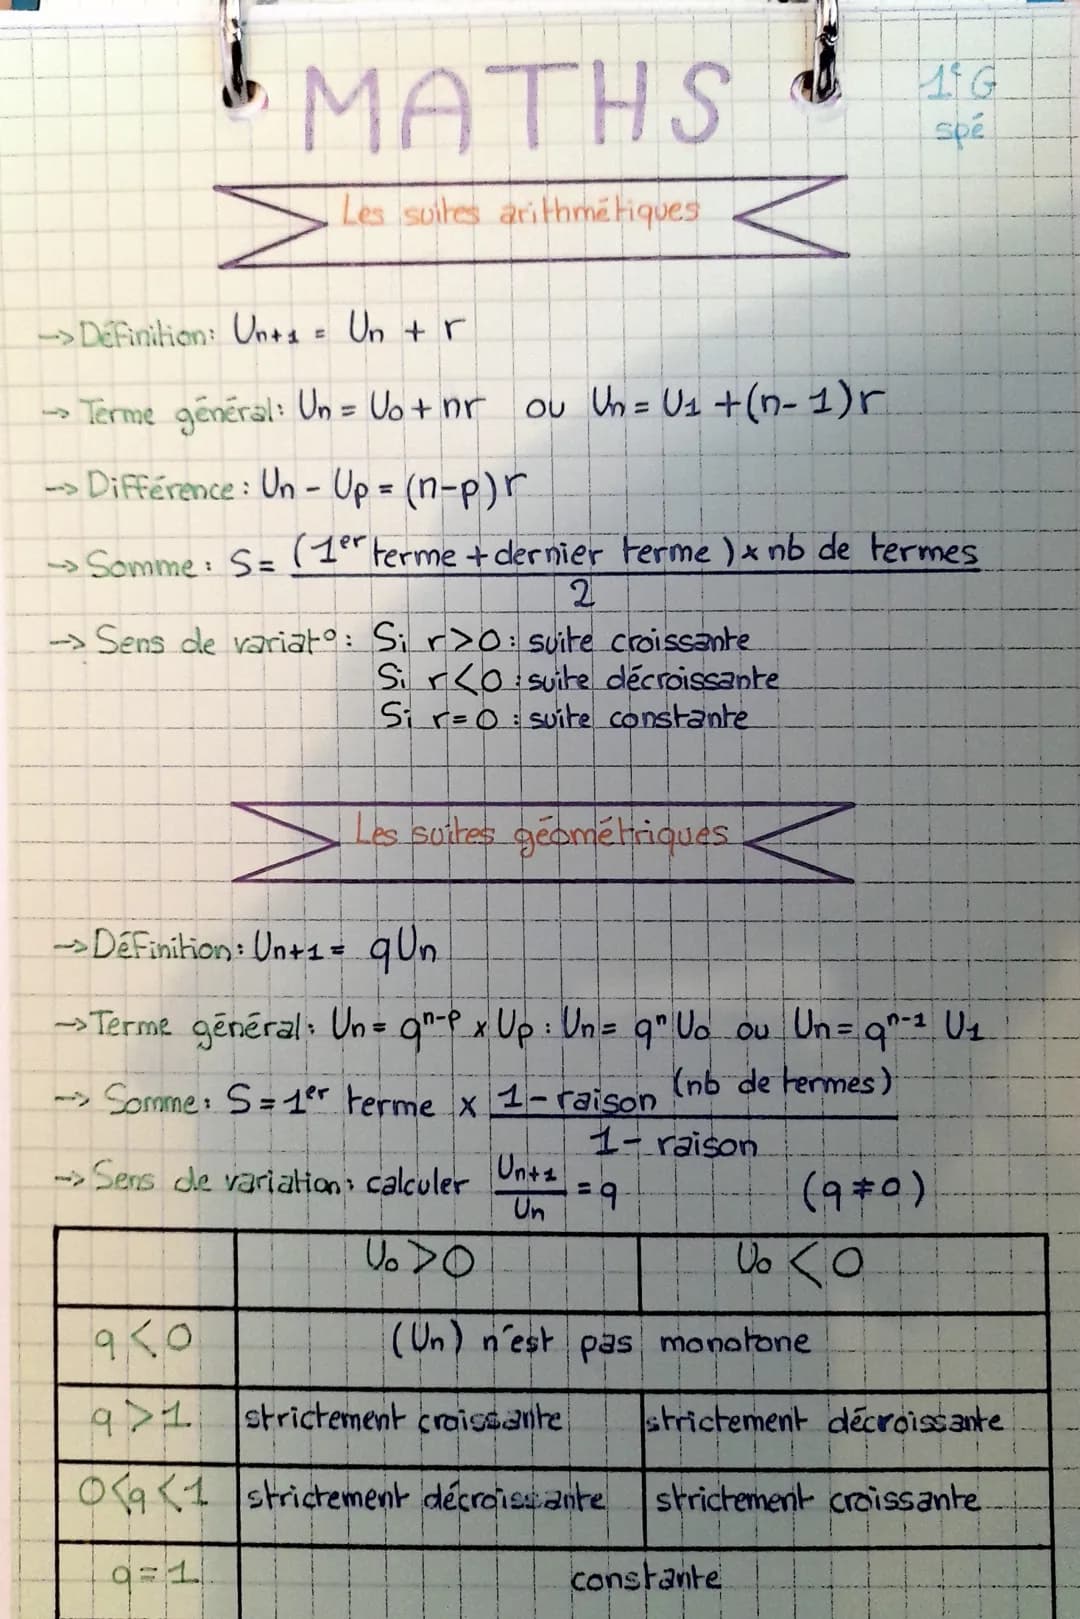 MATHS
1° G
spé
Les suites arithmétiques
-> Définition: Un+1 = Un + r
-> Terme général: Un = U0 + nr ou Un = U1 + (n-1)r
-> Différence: Un - Up = (n-p)r
-> Somme: S = (1er terme + dernier terme) x nb de termes
2
-> Sens de variat°: Si r>0: suite croissante
Si r<0: suite décroissante
Si r=0: suite constante
Les suites géométriques
-> Définition: Un+1 = qUn
-> Terme général: Un = q^n-p x Up : Un = q^n U0 ou Un = q^n-1 U1
-> Somme: S = 1er terme x 1 - raison (nb de termes)
1 - raison
-> Sens de variation: calculer Un+1 / Un = q (q≠0)
U0 > 0 U0 < 0
q < 0 (Un) n'est pas monotone
q > 1 strictement croissante strictement décroissante
0<q<1 strictement décroissante strictement croissante
q = 1 constante